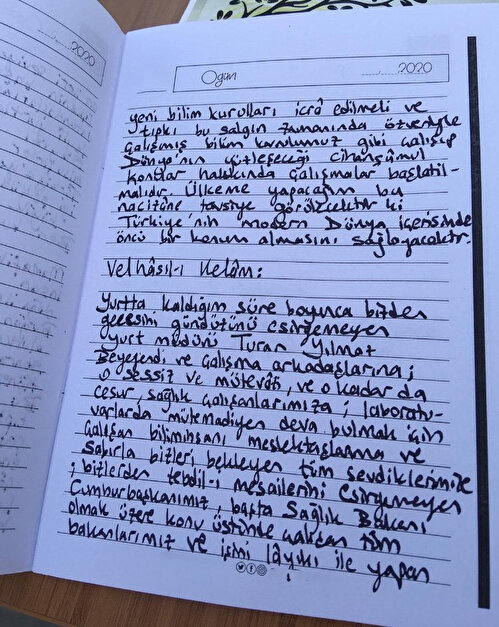 2020
Ogün
2020
yeni bilim kurulları icrâ edilmeli ve
tıpkı bu salgın zamanında özveriyle
çalışmış bilim kurulumuz gibi çalışıp
Dünya'nın yüzleşeceği cihanşümul
konular hakkında çalışmalar başlatıl-
malıdır. Ülkeme yapacağım bu
naçizâne tavsiye görülecektir ki
Türkiye'nin modern Dünya içerisinde
öncü bir konum almasını sağlayacaktır.
Velhâsıl-ı Kelâm:
Yurtta kaldığım süre boyunca bizden
gecesini gündüzünü esirgemeyen
yurt müdürü Turan Yılmaz
Beyefendi ve çalışma arkadaşlarına;
o sessiz ve mütevâzı, ve o kadar da
cesur, sağlık çalışanlarımıza; laboratu-
varlarda mütemadiyen deva bulmak için
çalışan biliminsanı meslektaşlarıma ve
Sabırla bizleri bekleyen tüm sevdiklerimize
; bizlerden tebdil-i mesailerini esirgemeyen
Cumhurbaşkanımız, başta Sağlık Bakanı
olmak üzere konu üstünde çalışan tüm
bakanlarımız ve işini lâyıkı ile yapan